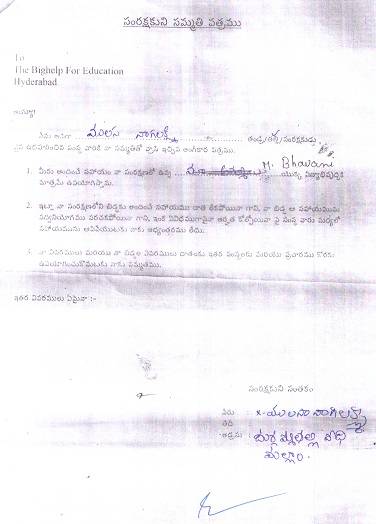 సంరక్షకుని సమ్మతి పత్రము
To
The Bighelp For Education
Hyderabad
అయ్యా!
నేను అనగా ములస నాగలక్ష్మి తండ్రి/తల్లి/సంరక్షకుడు
పైన ఉదహరించిన సంస్థ వారికి నా సమ్మతితో వ్రాసి ఇచ్చిన అంగీకార పత్రము.
1. మీరు అందించే సహాయం నా సంరక్షణలో ఉన్న M. Bhavani యొక్క విద్యాభివృద్ధికి
మాత్రమే ఉపయోగిస్తాను.
2. ఇట్లా నా సంరక్షణలోని బిడ్డకు అందించే సహాయము దాత లేకపోయినా గాని, నా బిడ్డ ఆ సహాయమును
సద్వినియోగము పరచకపోయినా గాని, ఇంకే విధముగానైనా అర్హత కోల్పోయినా పై సంస్థ వారు మధ్యలో
సహాయమును ఆపివేయుటకు నాకు అభ్యంతరము లేదు.
3. నా వివరములు మరియు నా బిడ్డల వివరములు దాతలకు ఇతర సంస్థలకు మరియు ప్రచారము కొరకు
ఉపయోగించుకోవుటకు నాకు సమ్మతము.
ఇతర వివరములు ఏమైనా :-
సంరక్షకుని సంతకం
పేరు : x. ములసా నాగలక్ష్మి
తేది
అడ్రసు :